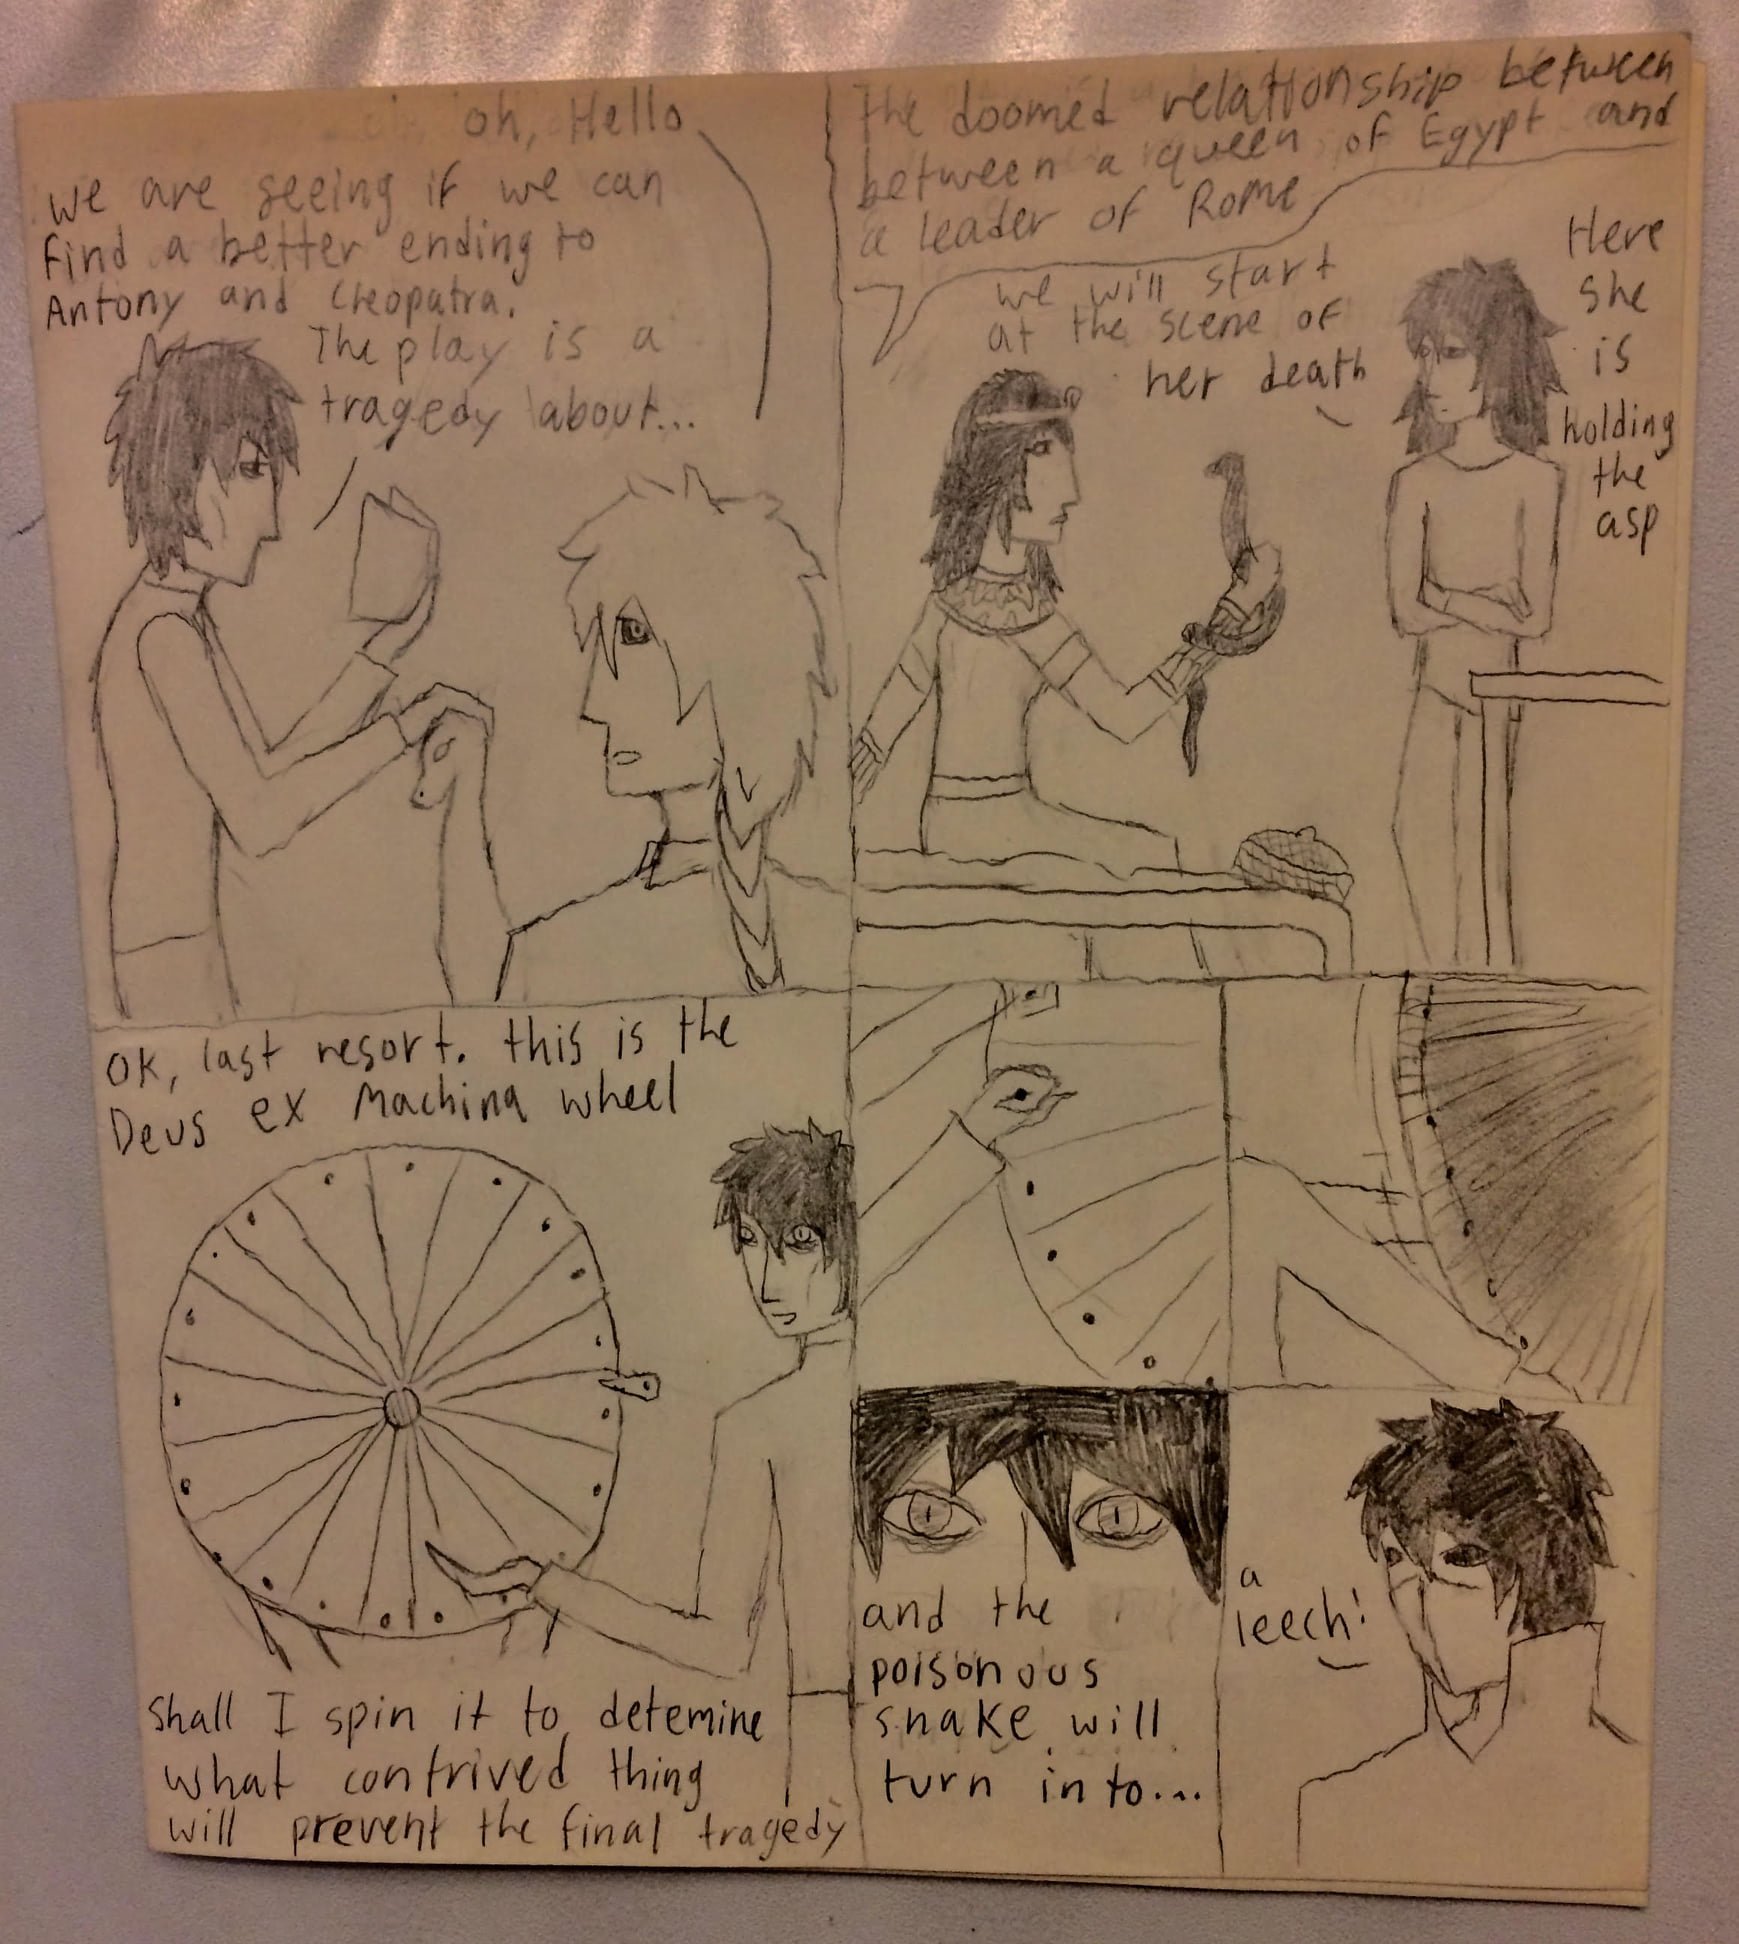 oh, Hello
we are seeing if we can
find a better ending to
Antony and Cleopatra.
The play is a
tragedy about...
The doomed relationship between
between a queen of Egypt and
a leader of Rome
we will start
at the scene of
her death
Here
she
is
holding
the
asp
OK, last resort. this is the
Deus ex Machina wheel
shall I spin it to detemine
what contrived thing
will prevent the final tragedy
and the
poisonous
snake will
turn into...
a
leech!